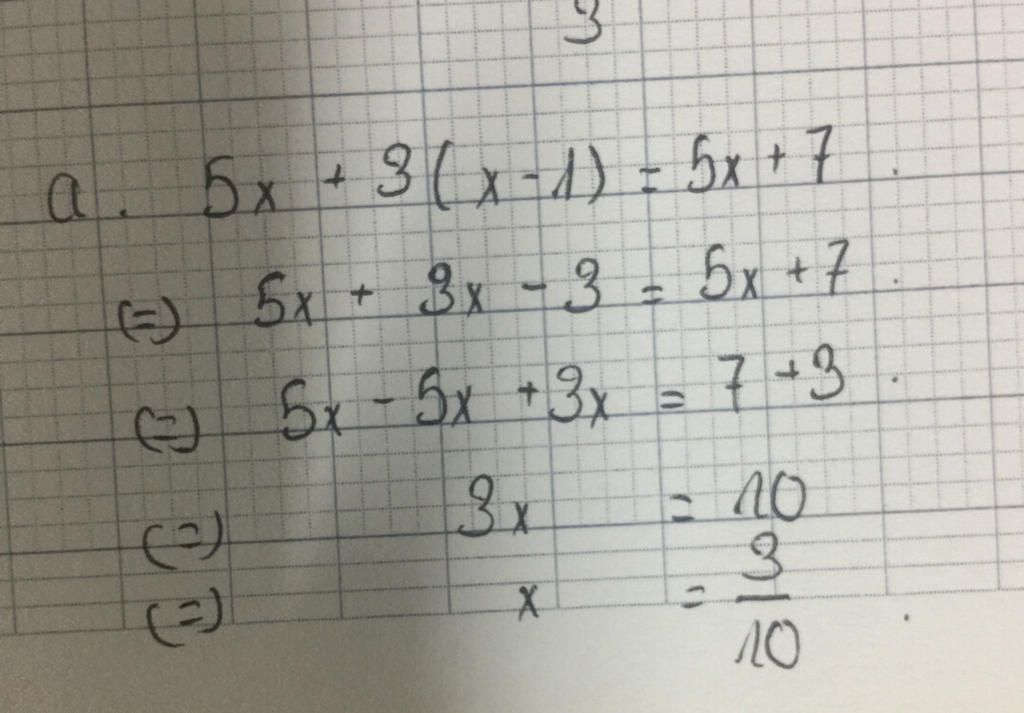 3
a. 5x + 3(x-1) = 5x + 7.
(=) 5x + 3x - 3 = 5x + 7.
(=) 5x - 5x + 3x = 7 + 3.
(=) 3x = 10
(=) x = 3/10.